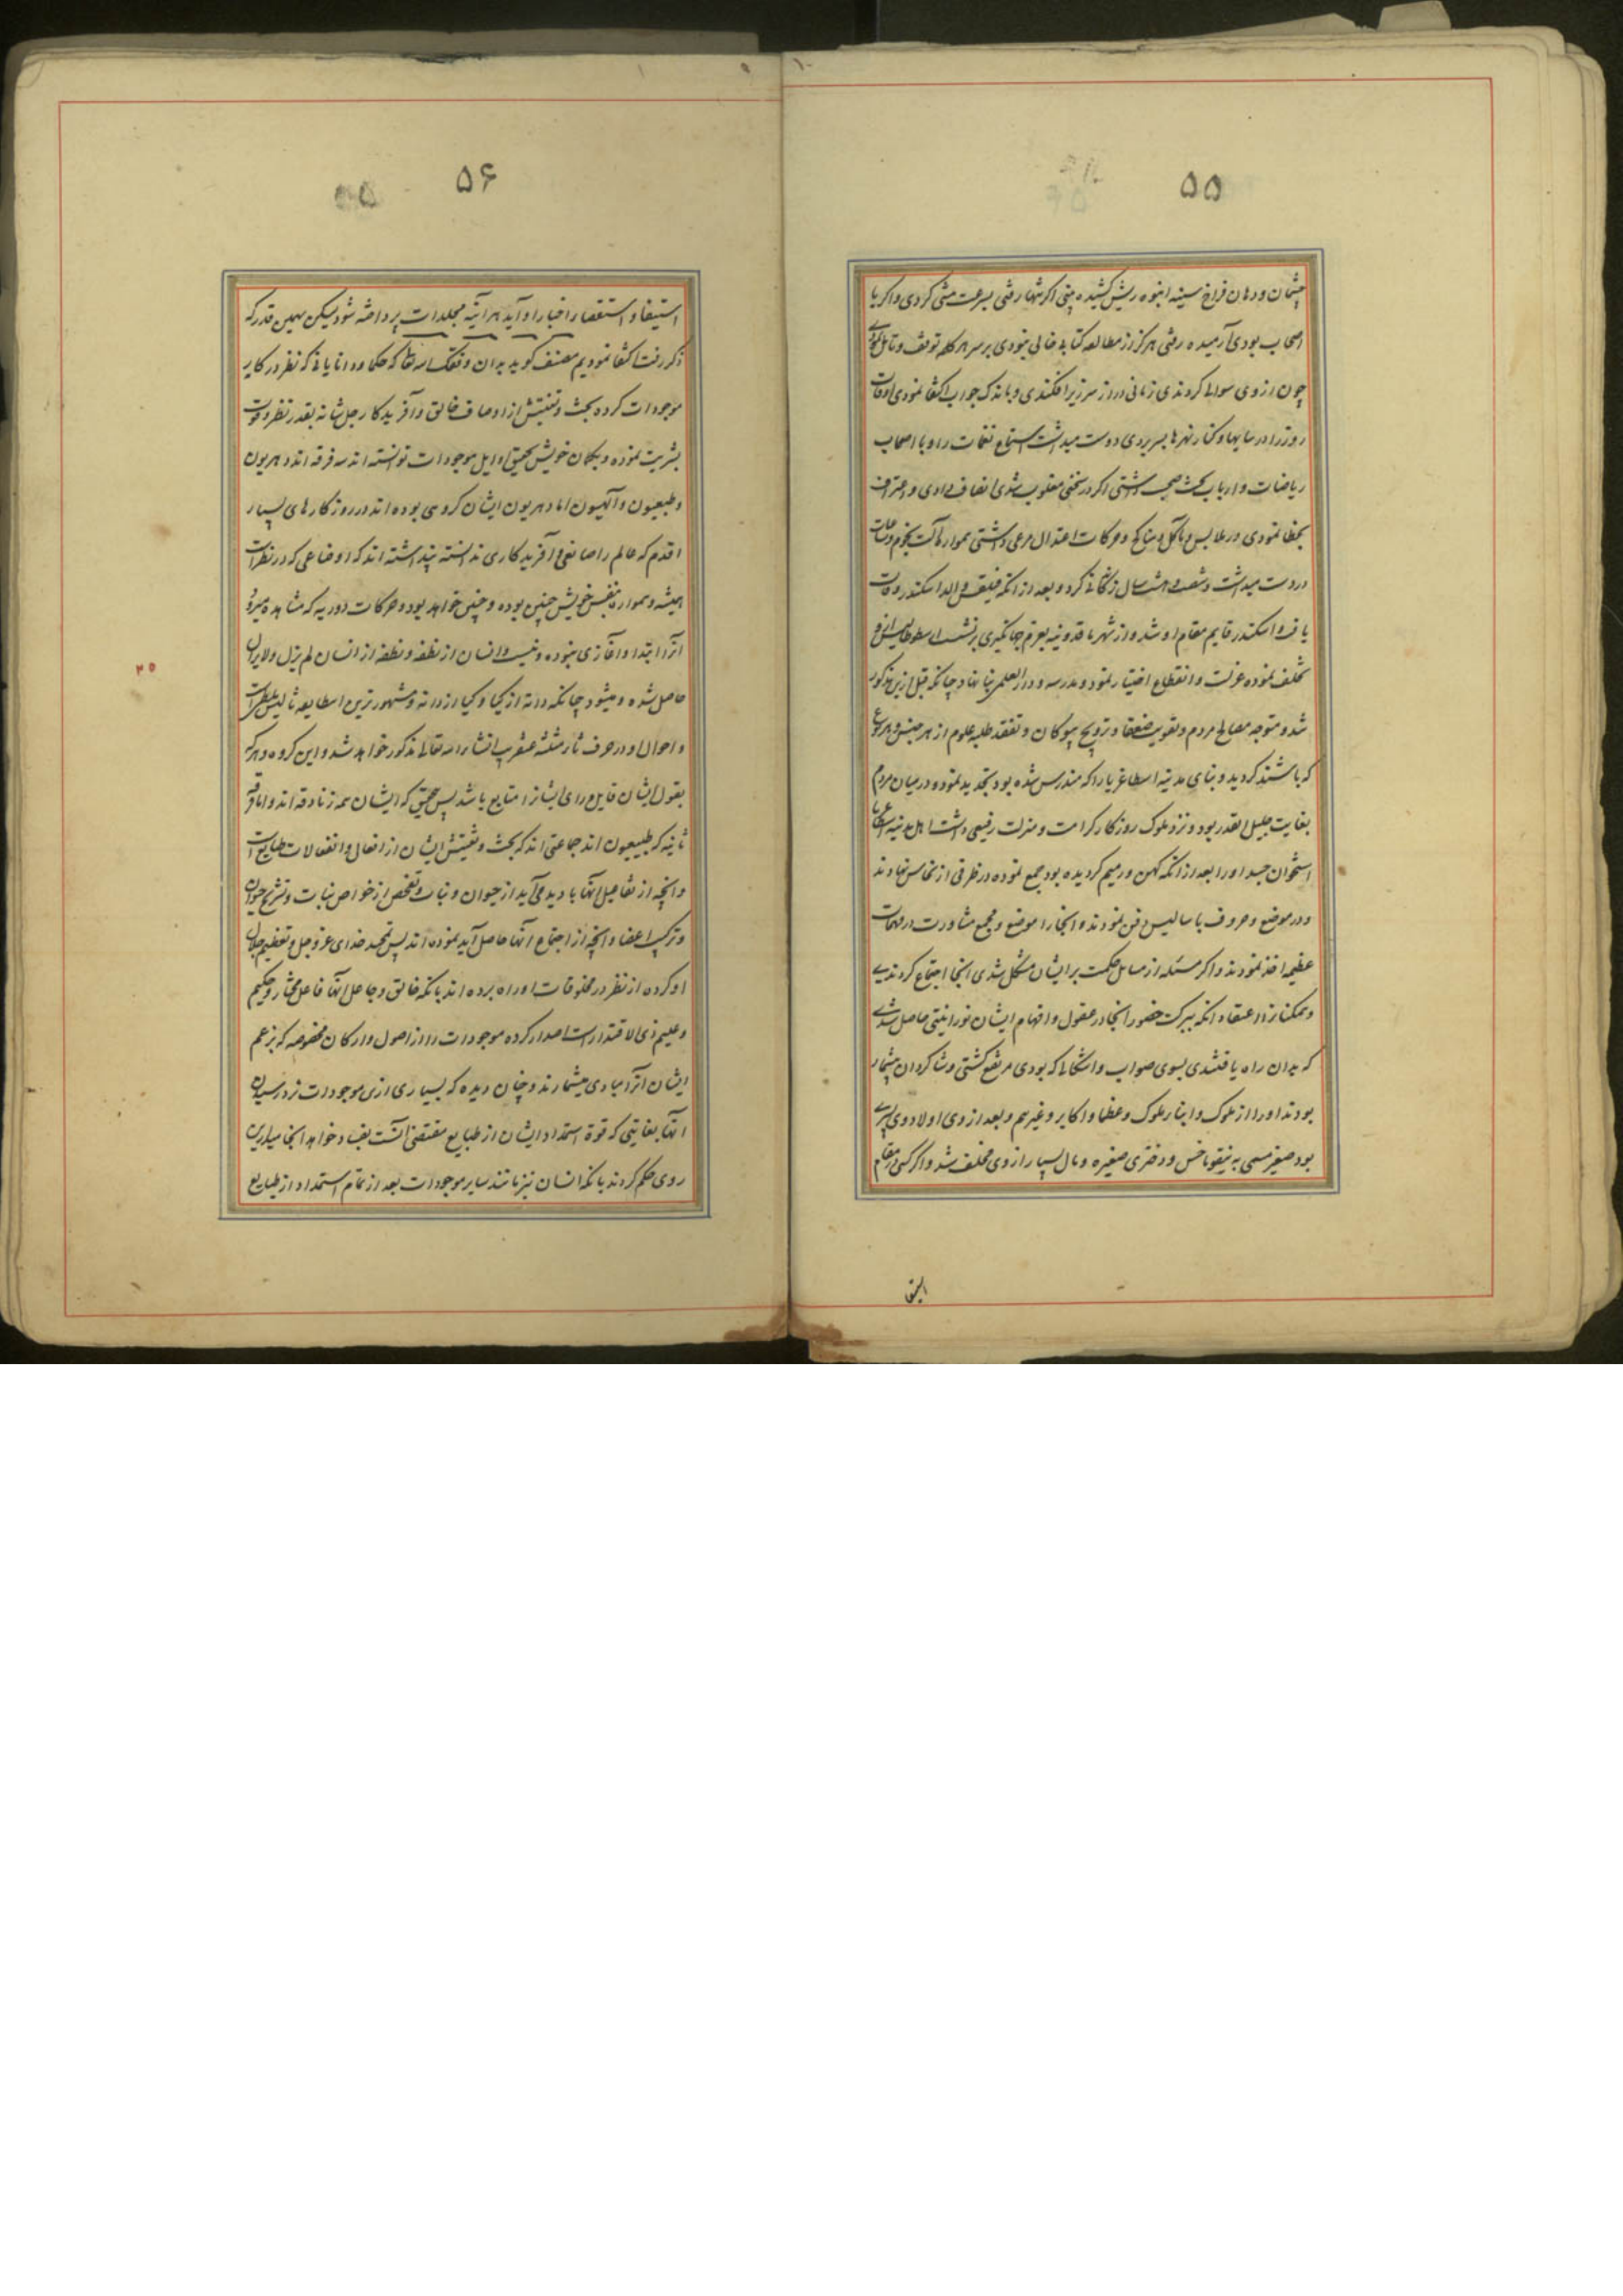 ۵۵
چشمان و دهان فراخ سینه انبوه ریش کشیده بینی اگر تنها رفتی بسرعت مشی کردی و اگر با
اصحاب بودی آرمیده رفتی هرگز از مطالعه کتابی خالی نبودی بر سر هر کلمه توقف و تامل
چون از وی سوالی کردندی زمانی دراز سر زیر افکندی و باندک جواب اکتفا نمودی اوقات
روز را در سایها و کنار نهرها بسر بردی دوست میداشت استماع نغمات را و با اصحاب
ریاضات و ارباب بحث صحبت داشتی اگر در سخنی مغلوب شدی انصاف دادی و اعتراف
بخطا نمودی در ملابس و ماکل و مناکح و حرکات اعتدال مرعی داشتی هموار آلت نجوم و ساعات
در دست میداشت و شصت و هشت سال زندگانی کرد و بعد از آنکه فیلقوس والد اسکندر وفات
یافت و اسکندر قایم مقام او شد و از شهر ماقدونیه بعزم جهانگیری برنشست ارسطوطالیس از وی
تخلف نموده عزلت و انقطاع اختیار نمود و مدرسه و دار العلمی بنا نهاد چنانکه قبل ازین مذکور
شد و متوجه مصالح مردم و تقویت ضعفا و ترویج بیوکان و تفقد طلبه علوم از هر جنس و هر نوع
که باشند گردید و بنای مدینه اسطاغریا را که مندرس شده بود تجدید نمود و در میان مردم
بغایت جلیل القدر بود و نزد ملوک روزگار کرامت و منزلت رفیعی داشت اهل مدینه اسطاغریا
استخوان جسد او را بعد از آنکه کهن و رمیم گردیده بود جمع نموده در ظرفی از نحاس نهادند
و در موضع معروف باسالیس دفن نمودند و انجا را موضع و مجمع مشاورت در مهمات
عظیمه اخذ نمودند و اگر مسئله از مسایل حکمت بر ایشان مشکل شدی انجا اجتماع کردندی
و همکنانرا اعتقاد آنکه ببرکت حضور انجا در عقول و افهام ایشان نورانیتی حاصل شدی
که بدان راه یافتندی بسوی صواب و اشکالی که بودی مرتفع گشتی و شاکردان بیشمار
بودند او را از ملوک و ابناء ملوک و عظما و اکابر و غیرهم و بعد از وی اولاد وی پسری
بود صغیر مسمی به نیقوماخس و دختری صغیره و مال بسیار از وی مخلف شد و اگر کسی در مقام
۵۶
استیفا و استقصاء اخبار او آید هر آینه مجلدات پرداخته شود لیکن بهمین قدر که
ذکر رفت اکتفا نمودیم مصنف گوید بدان وفقک الله تعالی که حکما و دانایانی که نظر در کار
موجودات کرده بحث و تفتیش از اوصاف خالق و آفریدکار جل شانه بقدر نظر و قوت
بشریت نموده و بگمان خویش تحقیق اوایل موجودات توانسته اند سه فرقه اند دهریون
و طبیعیون و آلهیون اما دهریون ایشان گروهی بوده اند در روزگارهای بسیار
اقدم که عالم را صانعی و آفریدکاری ندانسته پنداشته اند که اوضاعی که در نظر است
همیشه و همواره بنفس خویش چنین بوده و چنین خواهد بود و حرکات دوریه که مشاهده میرود
آنرا ابتدا و آغازی نبوده و نیست و انسان از نطفه و نطفه از انسان لم یزل و لایزال
حاصل شده و میشود چنانکه دانه از گیا و گیا از دانه و مشهورترین این طایفه ثالیس ملطی است
و احوال او در حرف ثاء مثلثه عنقریب انشاء الله تعالی مذکور خواهد شد و این گروه و هر که
بقول ایشان قایل و رای ایشانرا متابع باشد پس بتحقیق که ایشان همه زنادقه اند و اما فرقه
ثانیه که طبیعیون اند جماعتی اند که بحث و تفتیش ایشان از افعال و انفعالات طبایع است
و آنچه از تفاعیل آنها بادید می آید از حیوان و نبات و تفحص از خواص نبات و تشریح حیوان
و ترکیب اعضا و آنچه از اجتماع آنها حاصل آید نموده اند پس تمجید خدای عز و جل و تعظیم جلال
او کرده از نظر در مخلوقات او راه برده اند بانکه خالق و جاعل آنها فاعل مختار و حکیم
و علیم ذی الاقتدار است اصدار کرده موجودات را از اصول و ارکان مخصوصه که بزعم
ایشان آنرا مبادی میشمارند و چنان دیده که بسیاری ازین موجودات نزد رسیدن
آنها بغایتی که قوة استعداد ایشان از طبایع مقتضی آنست بفساد خواهد انجامید ازین
روی حکم کردند بانکه انسان نیز مانند سایر موجودات بعد از تمام استمداد از طبایع